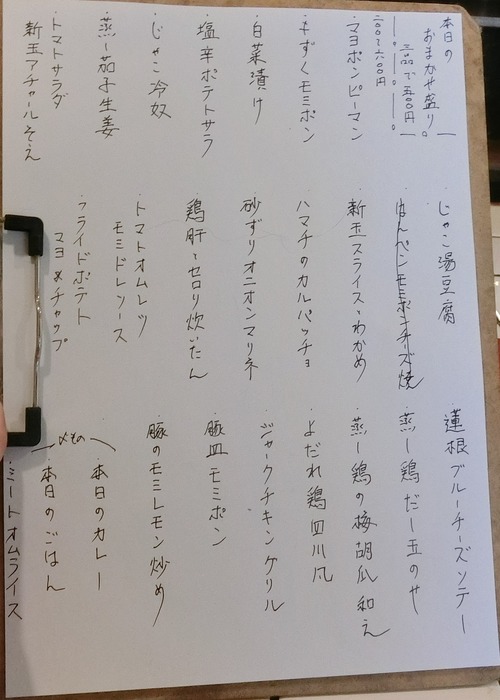 本日の
おまかせ盛り。
三品で五〇〇円
二〇〇〜六〇〇円
・マヨポンピーマン
・もずくモミポン
・白菜漬け
・塩辛ポテトサラ
・じゃこ冷奴
・蒸し茄子生姜
・トマトサラダ
新玉アチャールそえ
・じゃこ湯豆腐
・はんペンモミポンチーズ焼
・新玉スライス・わかめ
・ハマチのカルパッチョ
・砂ずりオニオンマリネ
・鶏肝とセロリ炊いたん
・トマトオムレツ
モミドレソース
・フライドポテト
マヨ&チャップ
・蓮根ブルーチーズソテー
・蒸し鶏だし玉のせ
・蒸し鶏の梅胡瓜和え
・よだれ鶏四川風
・ジャークチキングリル
・豚皿モミポン
・豚のモミレモン炒め
〆もの
・本日のカレー
・本日のごはん
・ミートオムライス